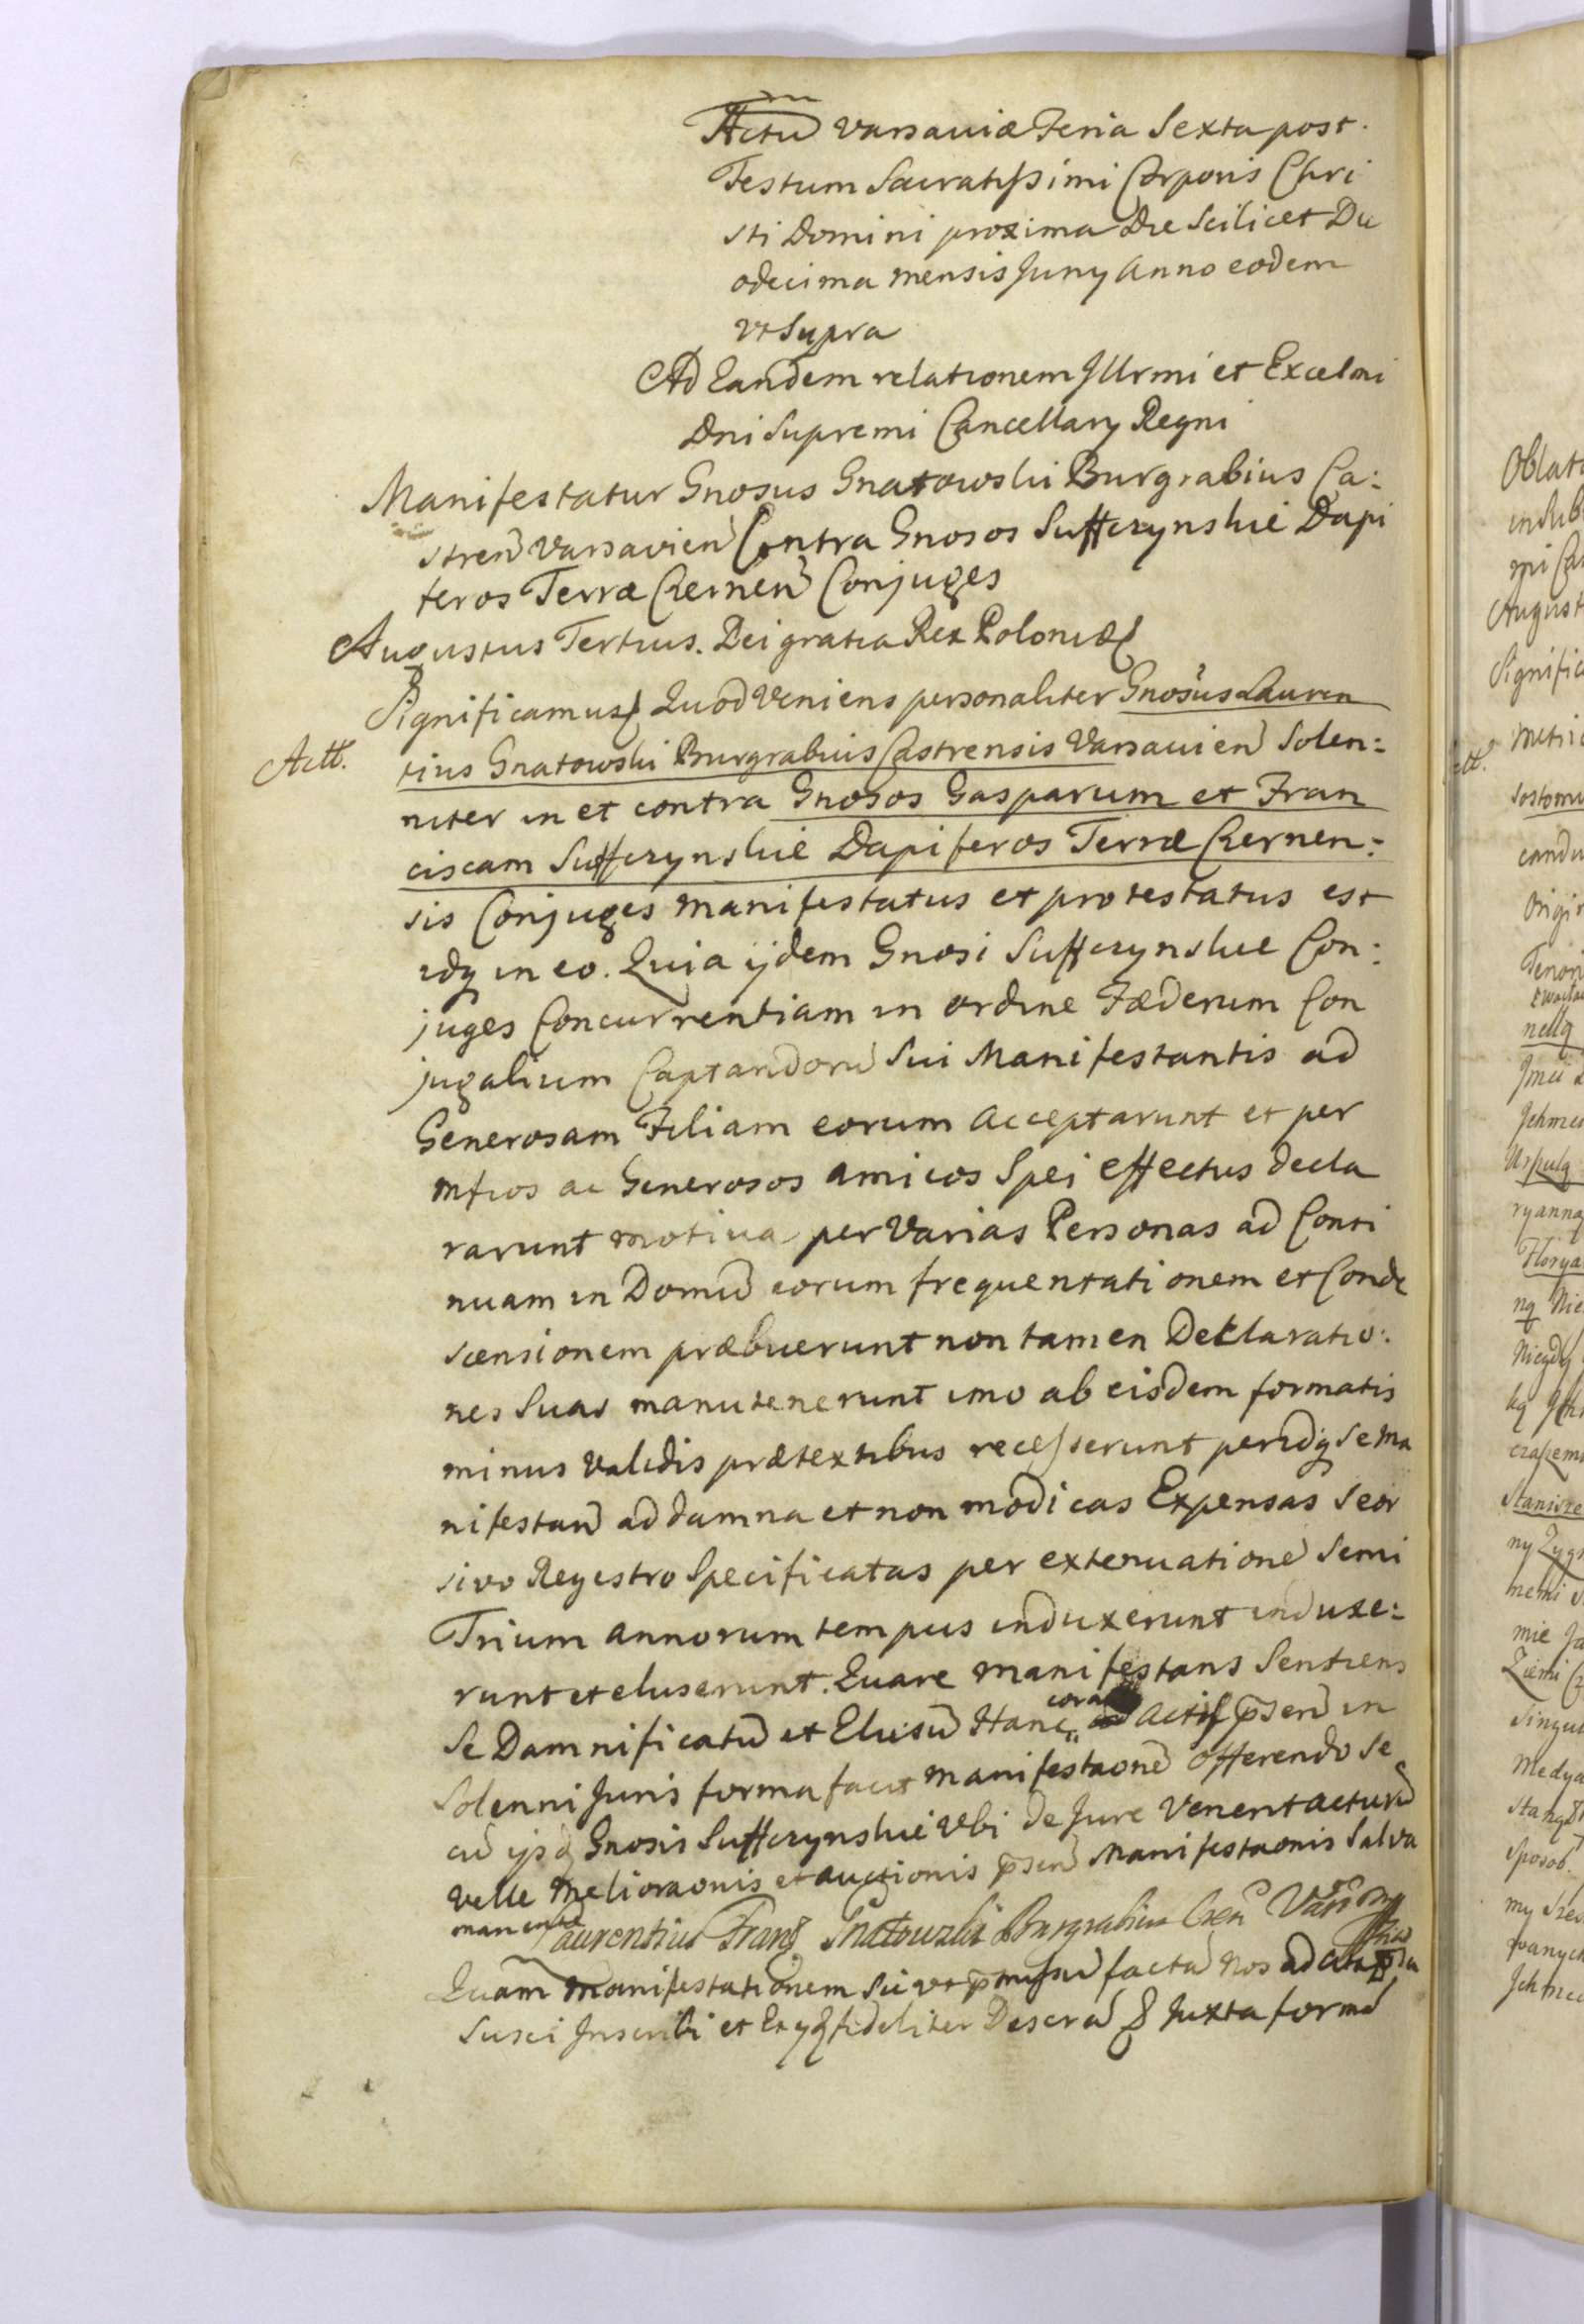 Actũ Varsaviæ Feria Sexta post
Festum Sacratissimi Corporis Chri
sti Domini proxima Die Scilicet Du
odecima mensis Juny Anno eodem
vt Supra
Ad Eandem relationem Jllrmi et Excelmi
Dni Supremi Cancellary Regni
Manifestatur Gnosus Gnatowski Burgrabius Ca:
stren Varsavien Contra Gnosos Suffczynskie Dapi
feros Terræ Czernen Conjuges
Augustus Tertius. Dei gratia Rex Poloniæ
Significamus Quod Veniens personaliter Gnosus Lauren
Actt.
tius Gnatowski Burgrabius Castrensis Varsavien Solen=
niter in et contra Gnosos Gasparum et Fran
ciscam Suffczynskie Dapiferos Terræ Czernen=
sis Conjuges manifestatus et protestatus est
idq in eo. Quia ijdem Gnosi Suffczynskie Con:
juges Concurrentiam in ordine Fæderum Con
jugalium Captandorũ Sui Manifestantis ad
Generosam Filiam eorum acceptarunt et per
mfcos ac Generosos amicos Spei effectus decla
rarunt motiva per Varias Personas ad Conti
nuam in Domũ eorum frequentationem et Conde
scensionem præbuerunt non tamen Declaratio:
nes Suas manutenerunt imo ab eisdem formatis
minus Validis prætextibus recesserunt peridq se ma
nifestan ad damna et non modicas Expensas Seor
sivo Regestro Specificatas per extenuationẽ Semi
Trium annorum tempus induxerunt induxe=
runt et eluserunt. Quare manifestans Sentiens
Se Damnificatũ et Elusũ Hanc cora Actis psen in
Solenni Juris forma facit manifestaonẽ offerendo se
cũ ijsd Gnosis Suffczynskie Vbi de Jure Venerit acturũ
velle Melioraonis et auctionis psen Manifestaonis Salva
manente
Laurentius Franç Gnatowski Burgrabius
Quam manifestationem Sic vt pmissũ factã nos ad
Susci Jnscribi et fideliter Juxta formã